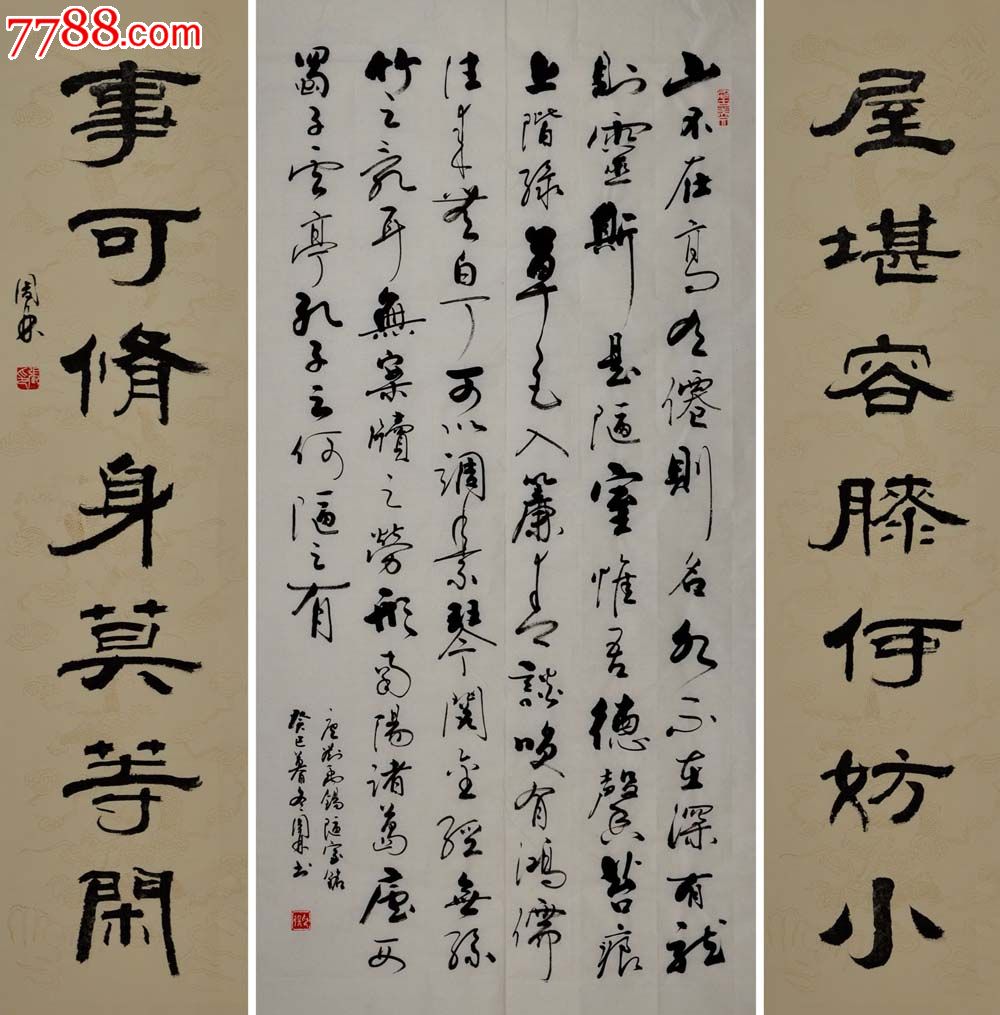 7788.com
屋堪容膝何妨小
山不在高有僊則名水不在深有龍
則靈斯是陋室惟吾德馨苔痕
上階綠草色入簾青談笑有鴻儒
往来無白丁可以調素琴閱金經無絲
竹之亂耳無案牘之勞形南陽諸葛廬西
蜀子云亭孔子云何陋之有
唐劉禹錫陋室銘
癸巳暮冬周书
事可脩身莫等閑
周